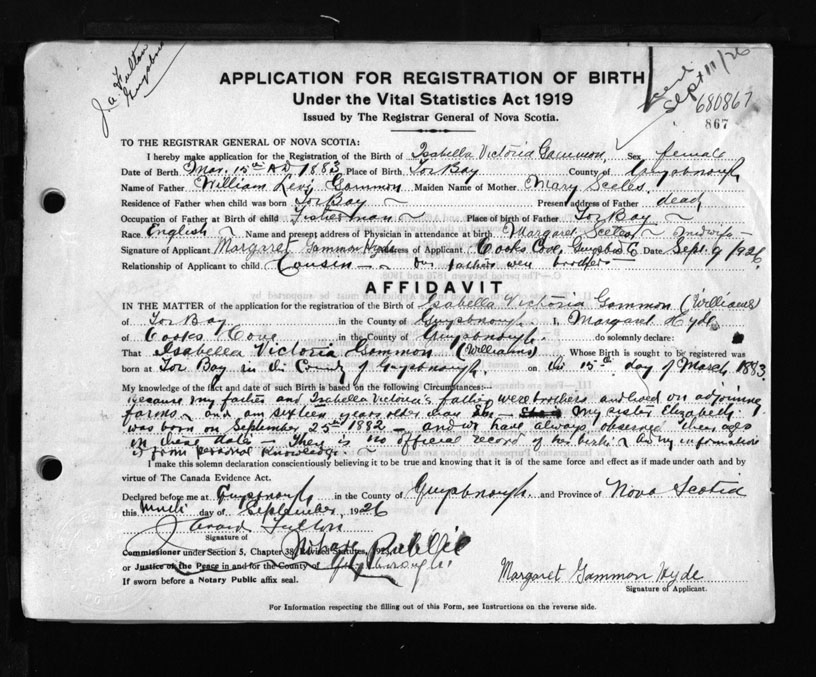 J.A. Fulton
Guysboro
Sept 11/26
680867
867
APPLICATION FOR REGISTRATION OF BIRTH
Under the Vital Statistics Act 1919
Issued by The Registrar General of Nova Scotia.
TO THE REGISTRAR GENERAL OF NOVA SCOTIA:
I hereby make application for the Registration of the Birth of Isabella Victoria Gammon, Sex female
Date of Birth Mar. 15th AD 1883 Place of Birth Tor Bay County of Guysborough
Name of Father William Levi Gammon Maiden Name of Mother Mary Seeles.
Residence of Father when child was born Tor Bay Present Address of Father dead
Occupation of Father at Birth of child Fisherman Place of birth of Father Tor Bay
Race English Name and present address of Physician in attendance at birth Margaret Seeles midwife
Signature of Applicant Margaret Gammon Hyde Address of Applicant Cooks Cove, Guysboro Date Sept. 9 1926
Relationship of Applicant to child Cousin our fathers were brothers
AFFIDAVIT
IN THE MATTER of the application for the registration of the Birth of Isabella Victoria Gammon (Williams)
of Tor Bay in the County of Guysborough. I, Margaret Hyde
of Cooks Cove in the County of Guysborough. do solemnly declare:
That Isabella Victoria Gammon (Williams) Whose Birth is sought to be registered was
born at Tor Bay in the County of Guysborough. on the 15th day of March 1883.
My knowledge of the fact and date of such Birth is based on the following Circumstances:—
Because my father and Isabella Victoria's father were brothers and lived on adjoining
farms and am sixteen years older than my sister Elizabeth
was born on September 25th 1882 and we have always observed their ages
in these dates They is no official record of her birth my information
is from personal knowledge.
I make this solemn declaration conscientiously believing it to be true and knowing that it is of the same force and effect as if made under oath and by
virtue of The Canada Evidence Act.
Declared before me at Guysborough in the County of Guysborough. and Province of Nova Scotia
this Ninth day of September, 1926
Fulton
Signature of
Commissioner under Section 5, Chapter 38, Revised Statutes, 1923, Notary Public
or Justice of the Peace in and for the County of Guysborough.
If sworn before a Notary Public affix seal.
Margaret Gammon Hyde
Signature of Applicant.
For Information respecting the filling out of this Form, see Instructions on the reverse side.